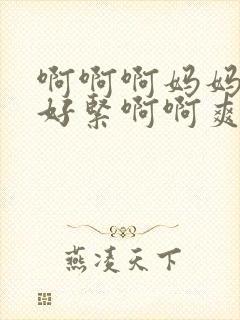 啊啊啊妈妈
好紧啊啊爽
燕凌天下